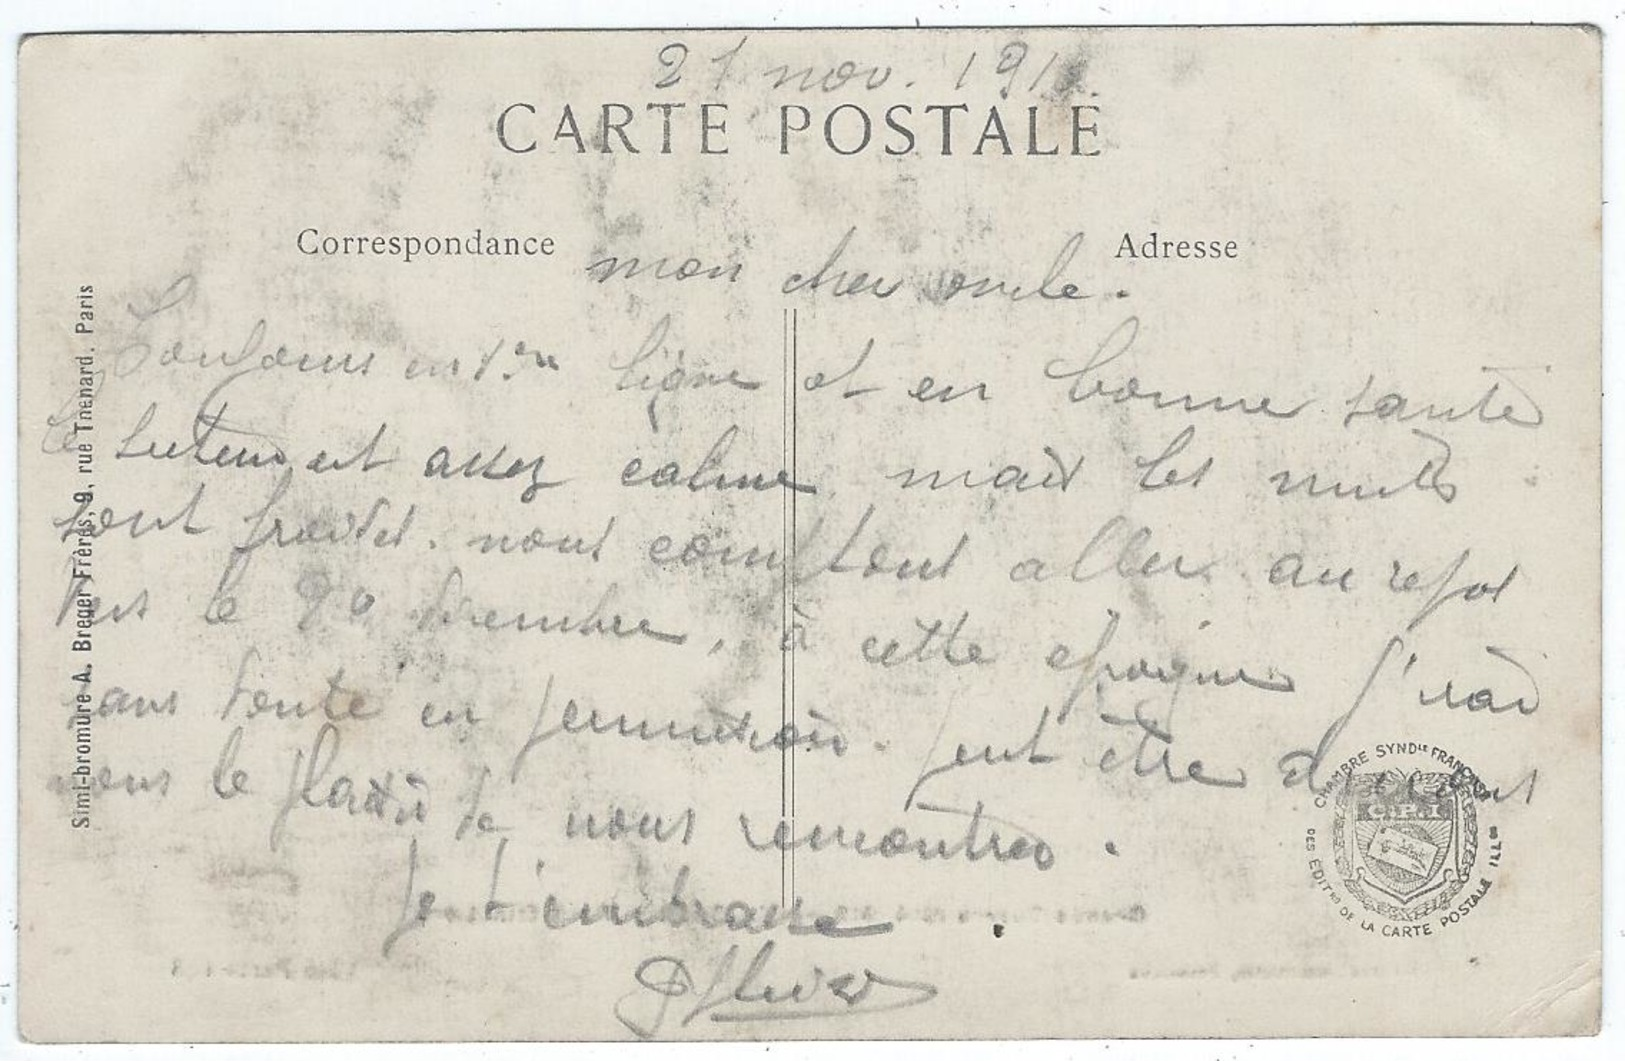 21 nov. 191
CARTE POSTALE
Correspondance
Adresse
mon cher oncle.
Toujours en 1ère ligne et en bonne santé
le secteur est assez calme mais les nuits
sont froides. nous comptons aller au repos
vers le 20 décembre, à cette époque j'irai
sans doute en permission. peut être aurons
nous le plaisir de nous rencontrer.
Je t'embrasse
Simi-bromure A. Breger Frères, 9, rue Thenard. Paris
CHAMBRE SYNDle FRANÇAISE
DES EDITrs DE LA CARTE POSTALE ILLée
C.P.I